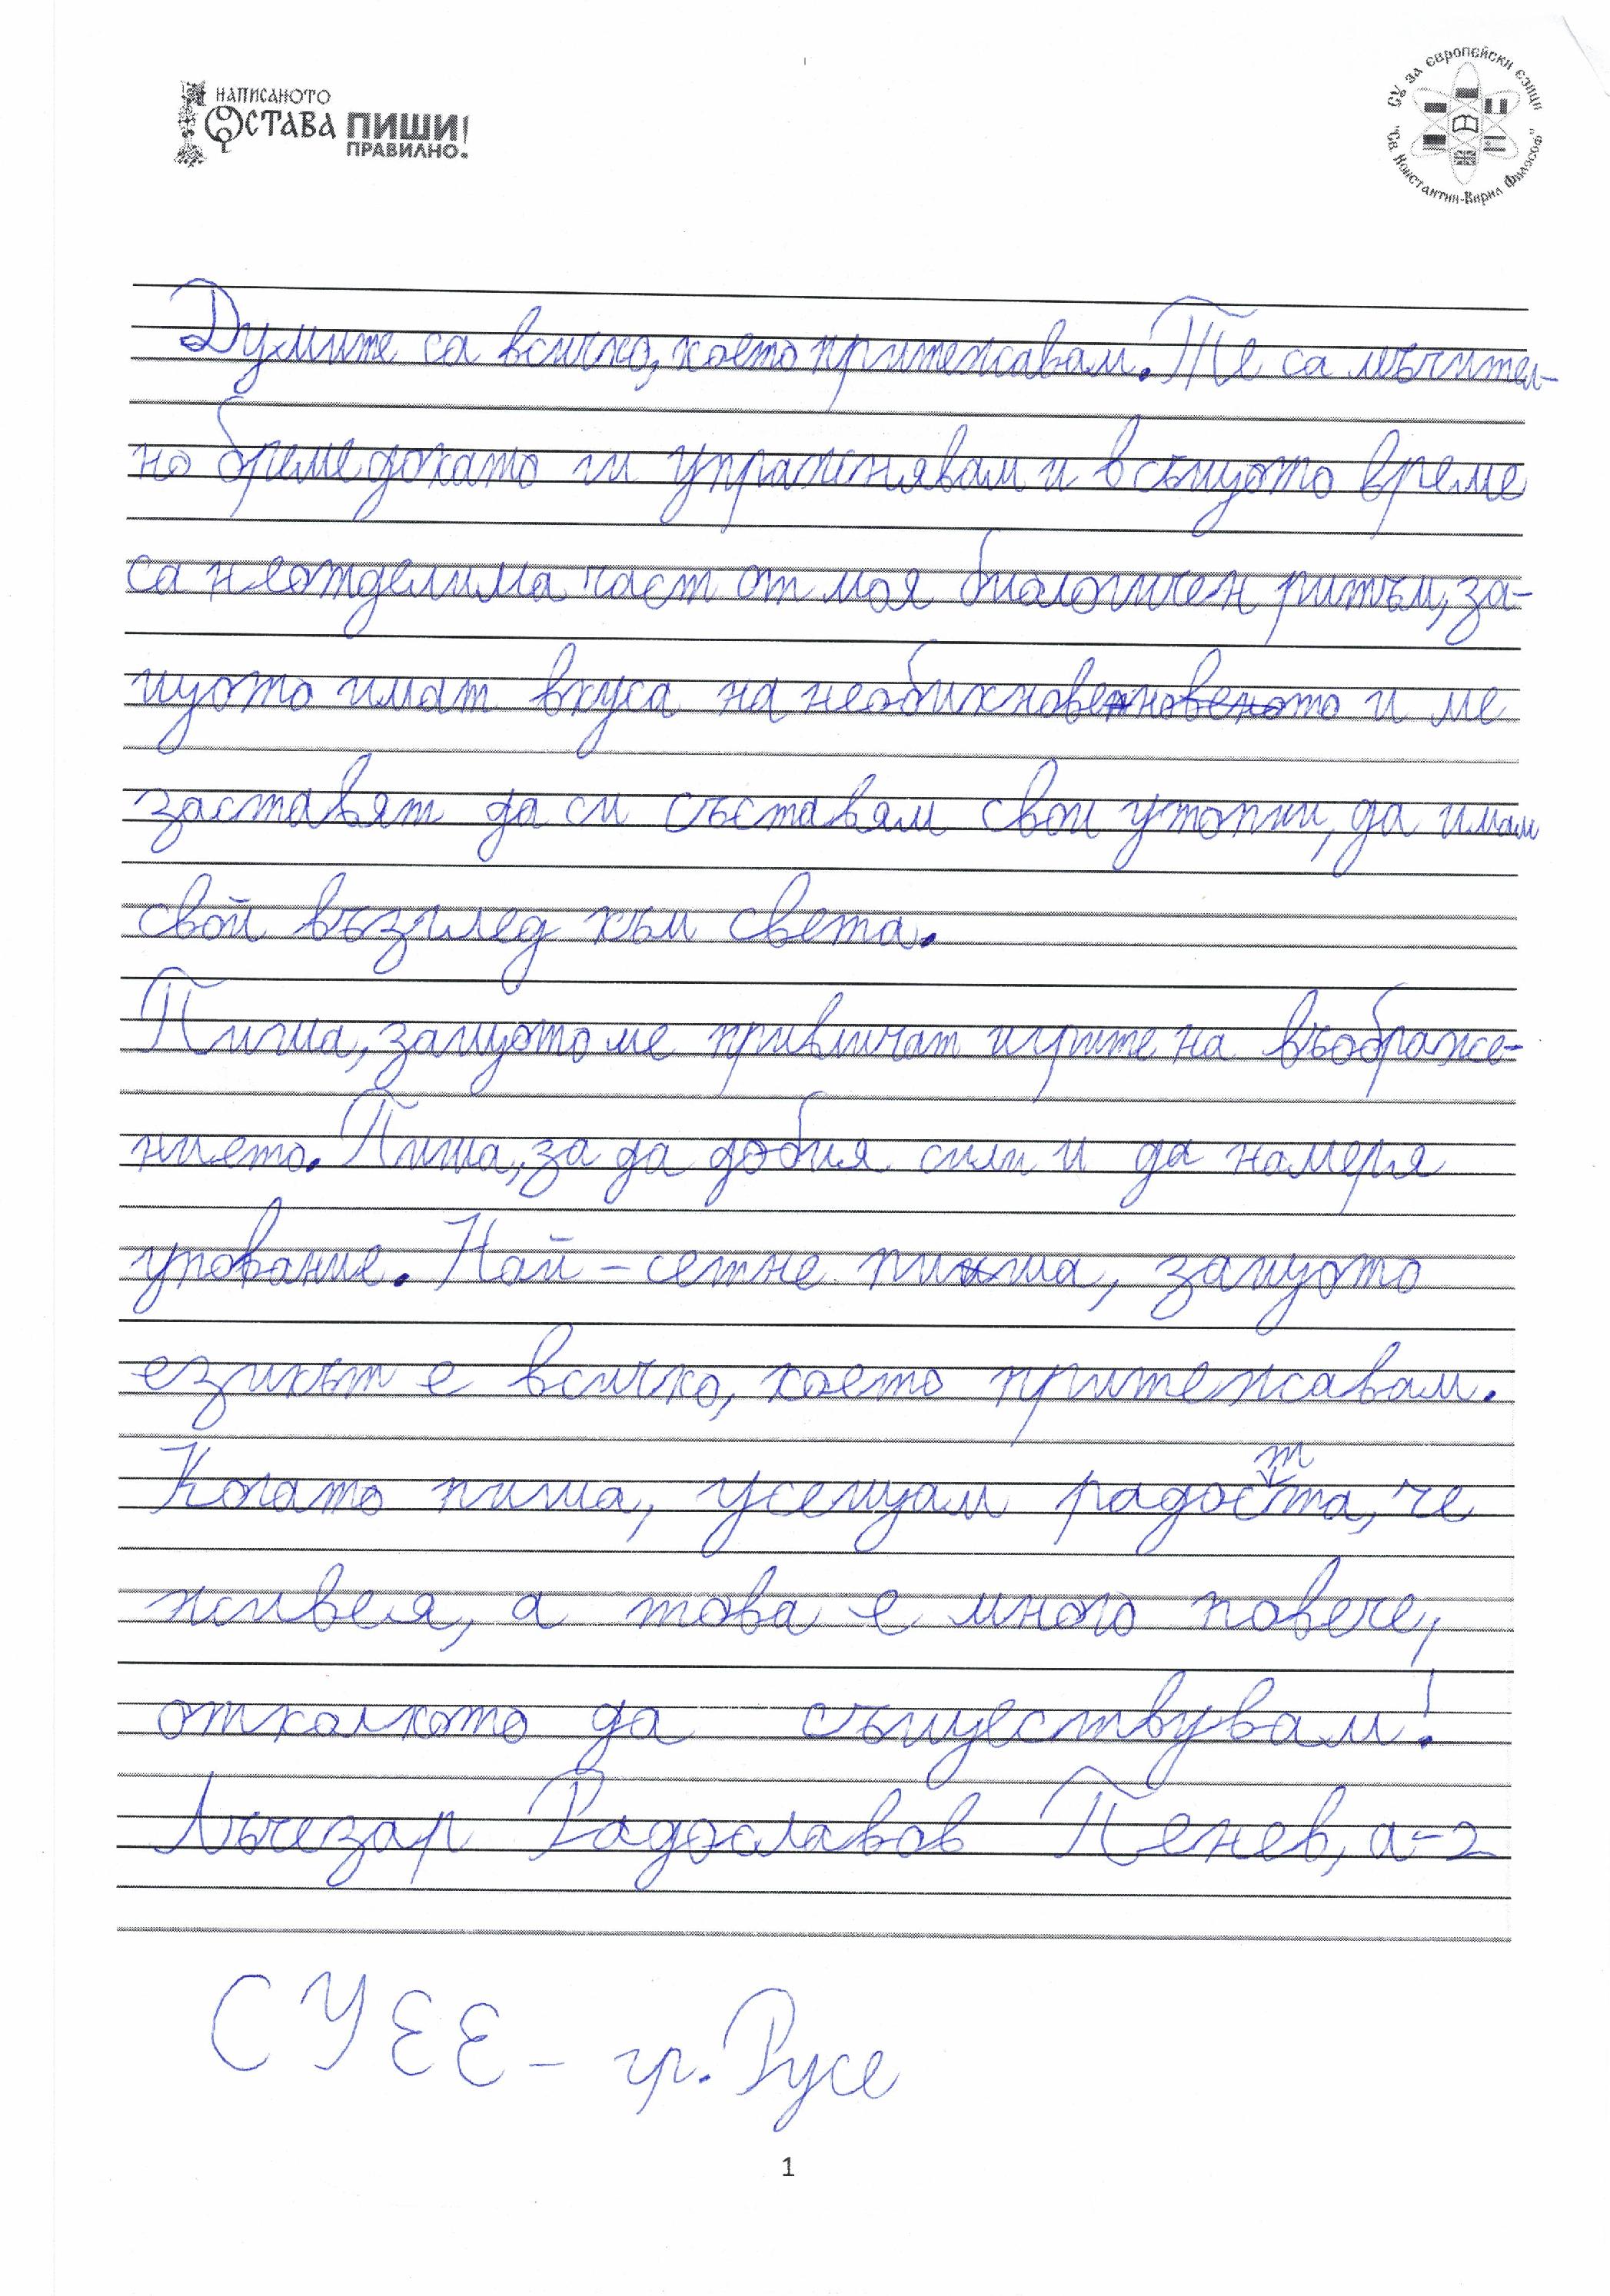 НАПИСАНОТО
ОСТАВА ПИШИ
ПРАВИЛНО!
СУ за европейски езици
"Св. Константин-Кирил Философ"
Думите са всичко, което притежавам. Те са мъчител-
но бреме докато ги упражнявам и в същото време
са неотделима част от моя биологичен ритъм, за-
щото имат вкуса на необикновенновеното и ме
заставят да си съставям свои утопии, да имам
свой възглед към света.
Пиша, защото ме привличат игрите на въображе-
нието. Пиша, за да добия сили и да намеря
упование. Най-сетне пиша, защото
езикът е всичко, което притежавам.
Когато пиша, усещам радостта, че
живея, а това е много повече,
отколкото да съществувам!
Лъчезар Радославов Пенев, а-2
СУЕЕ - гр. Русе
1